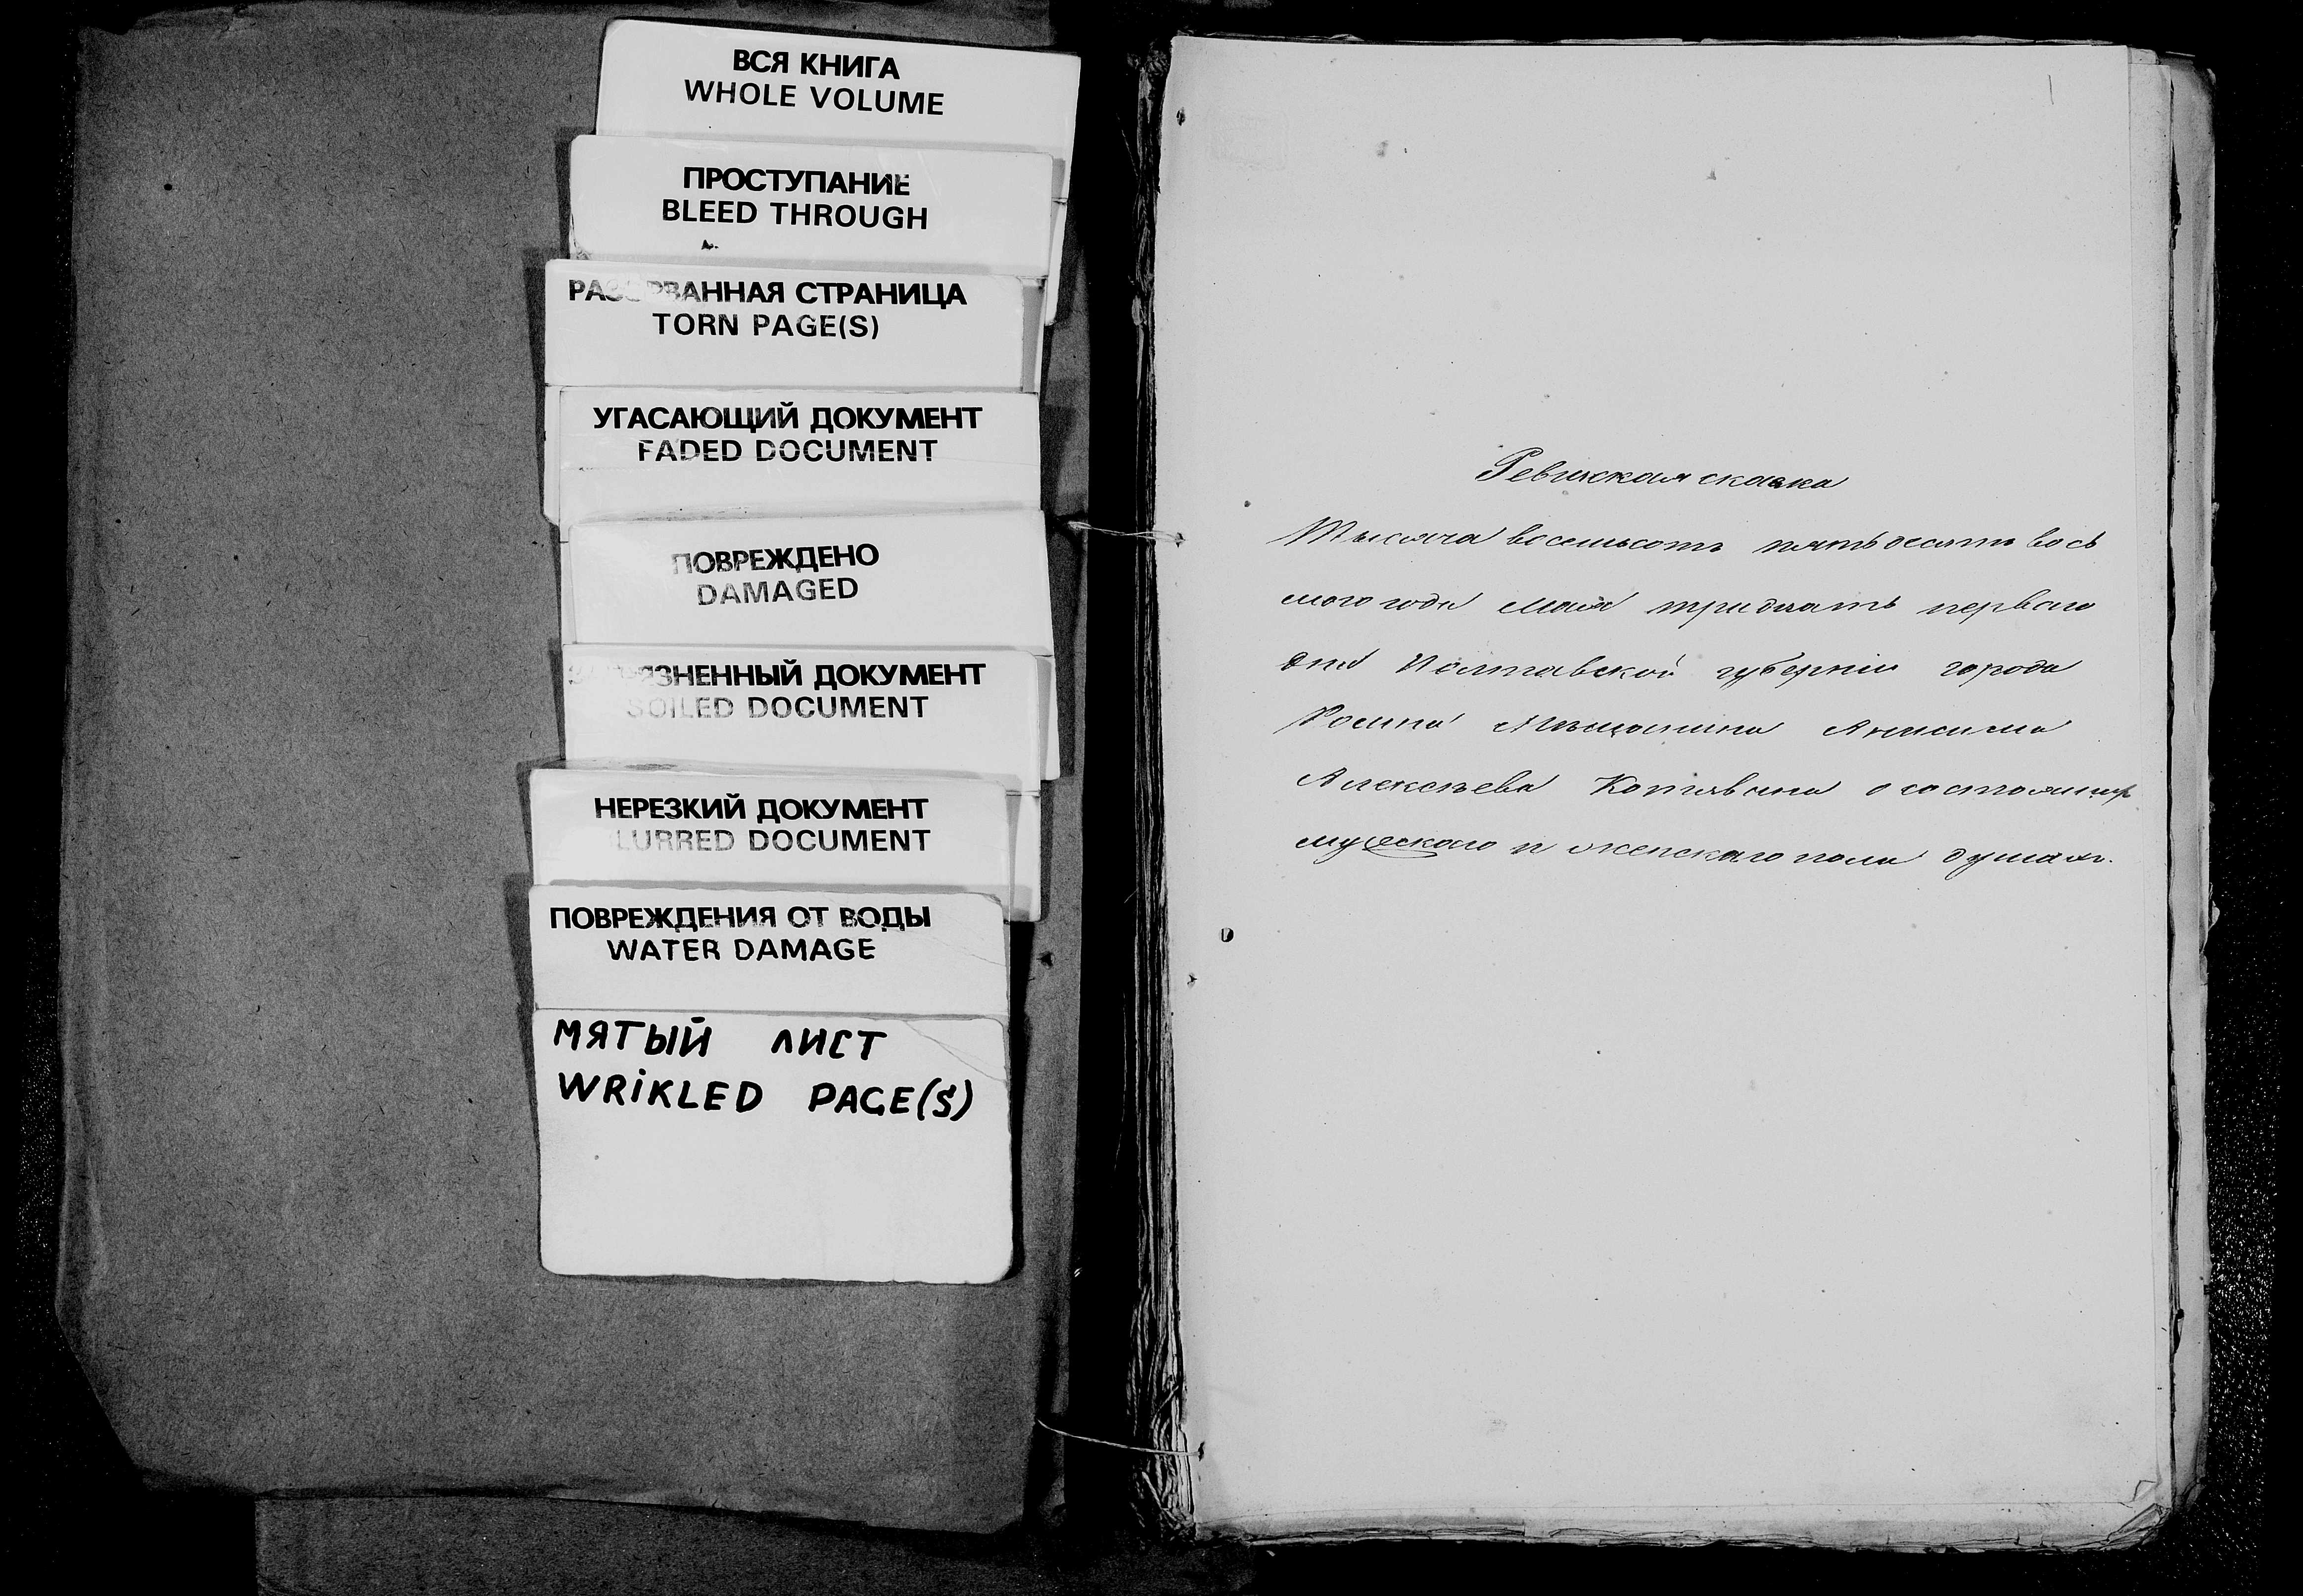 ВСЯ КНИГА
WHOLE VOLUME
ПРОСТУПАНИЕ
BLEED THROUGH
РАЗОРВАННАЯ СТРАНИЦА
TORN PAGE(S)
УГАСАЮЩИЙ ДОКУМЕНТ
FADED DOCUMENT
ПОВРЕЖДЕНО
DAMAGED
ЗАГРЯЗНЕННЫЙ ДОКУМЕНТ
SOILED DOCUMENT
НЕРЕЗКИЙ ДОКУМЕНТ
BLURRED DOCUMENT
ПОВРЕЖДЕНИЯ ОТ ВОДЫ
WATER DAMAGE
МЯТЫЙ ЛИСТ
WRIKLED PAGE(S)
Ревизская сказка
Тысяча восемьсотъ пятьдесятъ вось
мого года Мая тридцать первого
дня Полтавской губерніи города
Ромна Мѣщанина Анисима
Алексѣева о состоящихъ
мужескаго и женскаго пола душах.